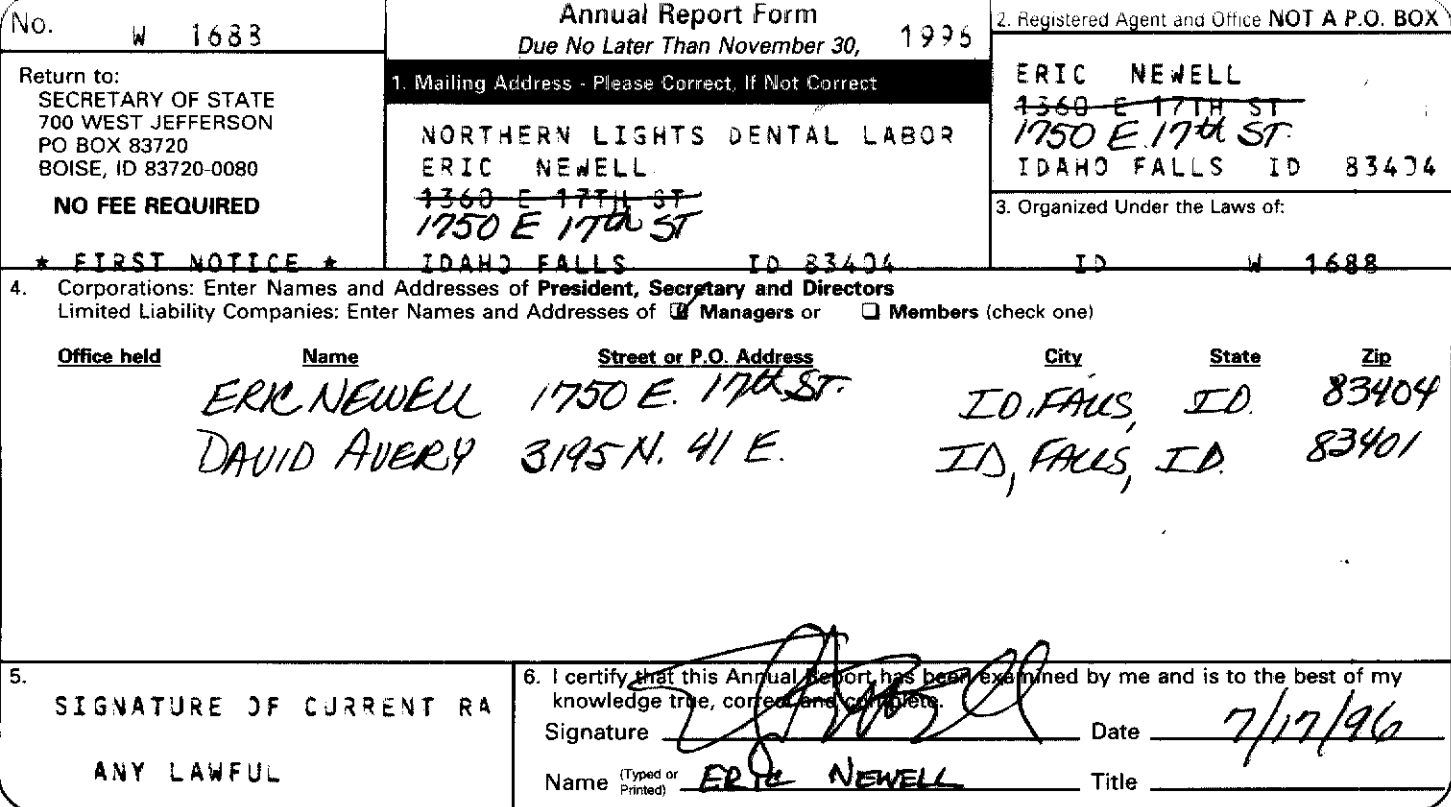 No. W 1688
Annual Report Form
Due No Later Than November 30, 1996
Return to:
SECRETARY OF STATE
700 WEST JEFFERSON
PO BOX 83720
BOISE, ID 83720-0080
NO FEE REQUIRED
* FIRST NOTICE *
1. Mailing Address - Please Correct, If Not Correct
NORTHERN LIGHTS DENTAL LABOR
ERIC NEWELL
1360 E 17TH ST
1750 E 17th ST
IDAHO FALLS ID 83404
2. Registered Agent and Office NOT A P.O. BOX
ERIC NEWELL
1360 E 17TH ST
1750 E. 17th ST.
IDAHO FALLS ID 83404
3. Organized Under the Laws of:
ID W 1688
4. Corporations: Enter Names and Addresses of President, Secretary and Directors
Limited Liability Companies: Enter Names and Addresses of ☑ Managers or ☐ Members (check one)
Office held Name Street or P.O. Address City State Zip
ERIC NEWELL 1750 E. 17th ST. ID. FALLS, ID. 83404
DAVID AVERY 3195 N. 41 E. ID, FALLS, ID. 83401
5.
SIGNATURE OF CURRENT RA
ANY LAWFUL
6. I certify that this Annual Report has been examined by me and is to the best of my
knowledge true, correct and complete.
Signature Date 7/17/96
Name (Typed or Printed) ERIC NEWELL Title